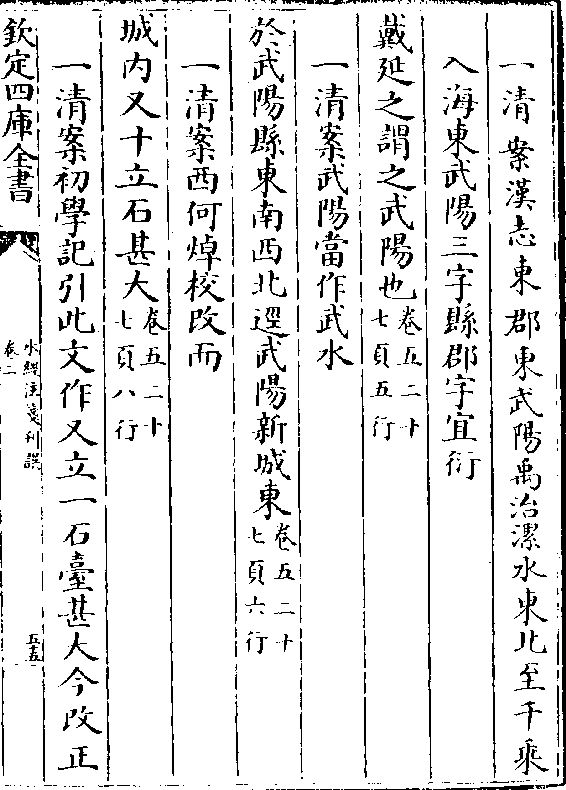 一清案漢志東郡東武陽禹治漯水東北至千乘
入海東武陽三字縣郡字宜衍
戴延之謂之武陽也卷五二十七頁五行
一清案武陽當作武水
於武陽縣東南西北逕武陽新城東卷五二十七頁六行
一清案西何焯校改而
城内又十立石甚大卷五二十七頁八行
一清案初學記引此文作又立一石臺甚大今改正
欽定四庫全書
水經注箋刊誤
卷二
五十五